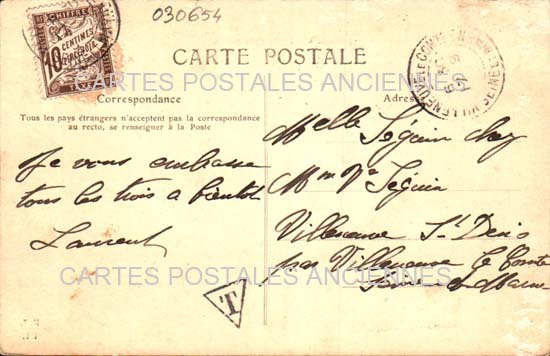 030654
CHIFFRE
10 CENTIMES
A PERCEVOIR
CARTE POSTALE
VILLENEUVE-LE-COMTE SEINE-ET-MARNE
CARTES POSTALES ANCIENNES
Correspondance
Adresse
Tous les pays étrangers n'acceptent pas la correspondance
au recto, se renseigner à la Poste
Je vous embrasse
tous les trois a bientôt
Laurent
Melle Séguin chez
Mme Ve Séguin
Villeneuve St Denis
par Villeneuve le Comte
Seine et Marne
CARTES POSTALES ANCIENNES
T